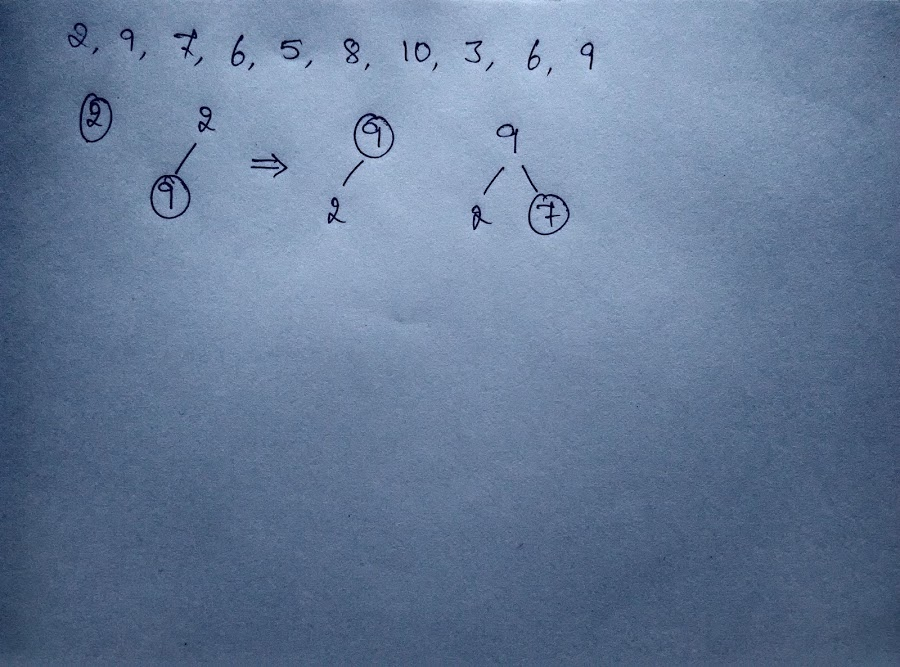 2, 9, 7, 6, 5, 8, 10, 3, 6, 9
2 2 ⇒ 9 9
9 2 2 7